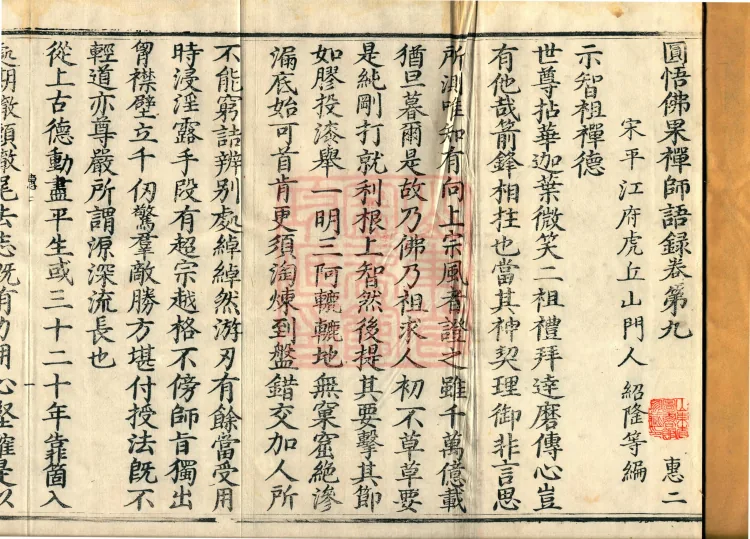 圓悟佛果禪師語録卷第九 惠二
宋平江府虎丘山門人 紹隆等編
示智祖禪德
世尊拈華迦葉微笑二祖禮拜達磨傳心豈
有他哉箭鋒相拄也當其神契理御非言思
所測唯知有向上宗風者證之雖千萬億載
猶旦暮爾是故乃佛乃祖求人初不草草要
是純剛打就利根上智然後提其要擊其節
如膠投漆舉一明三阿轆轆地無窠窟絶滲
漏底始可首肯更須淘煉到盤錯交加人所
不能窮詰辨别處綽綽然游刃有餘當受用
時浸淫露手段有超宗越格不傍師旨獨出
胷襟壁立千仞驚羣敵勝方堪付授法旣不
輕道亦尊嚴所謂源深流長也
從上古德動盡平生或三十二十年靠箇入
處明徹頭徹尾去志旣有力用心堅確是以